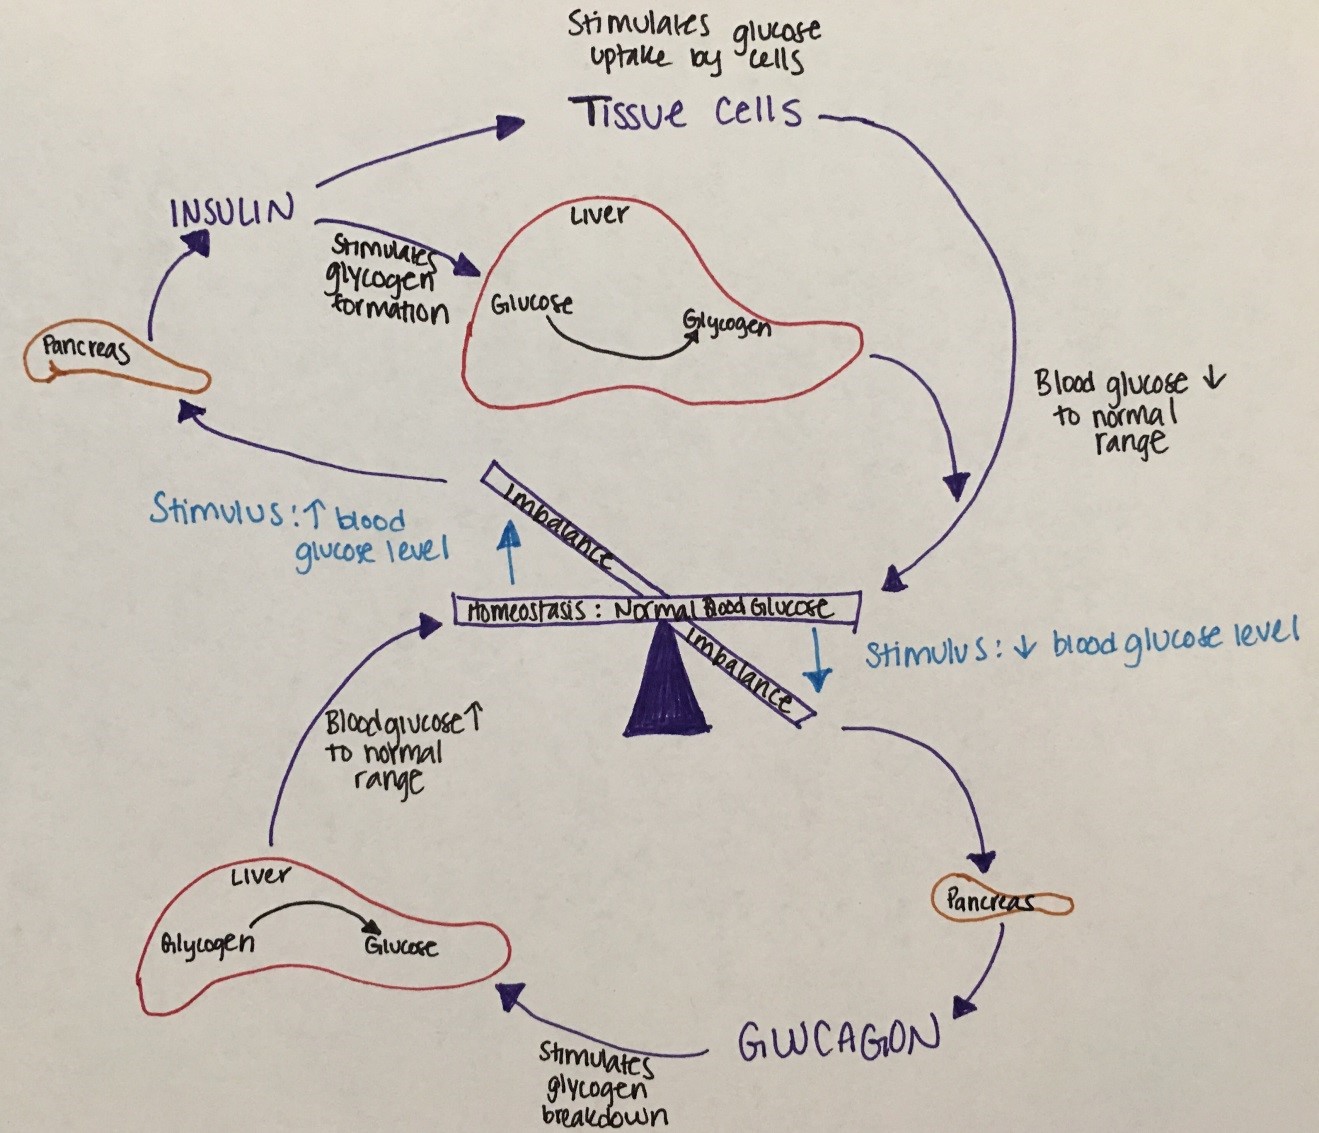 Stimulates glucose
uptake by cells
Tissue cells
INSULIN
Stimulates
glycogen
formation
Liver
Glucose
Glycogen
Pancreas
Blood glucose ↓
to normal
range
Stimulus: ↑ blood
glucose level
Imbalance
Homeostasis: Normal Blood Glucose
Imbalance
Stimulus: ↓ blood glucose level
Blood glucose ↑
to normal
range
Liver
Glycogen
Glucose
Pancreas
GLUCAGON
Stimulates
glycogen
breakdown